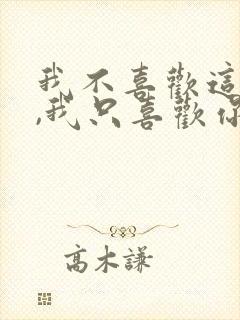 我不喜歡這
,我只喜歡你
高木謙